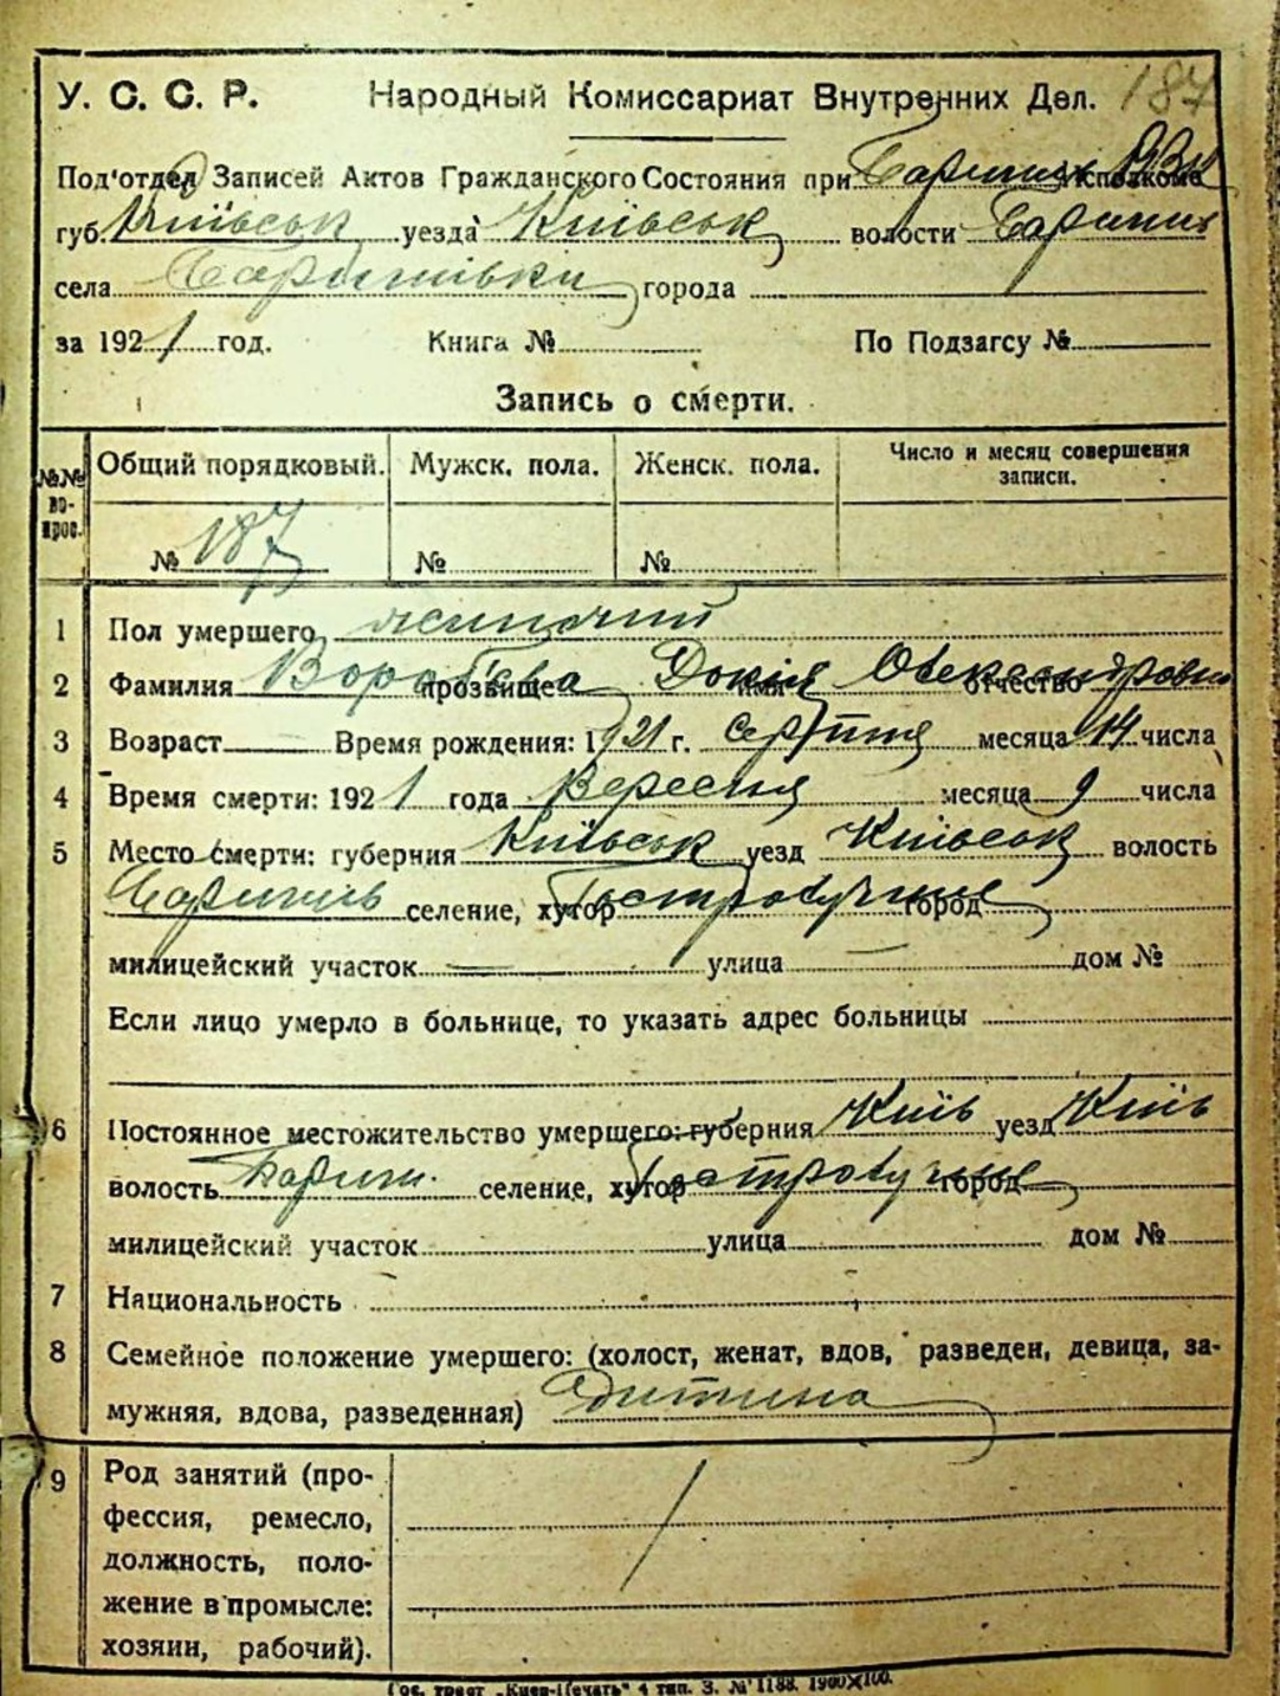 У. С. С. Р. Народный Комиссариат Внутренних Дел. 187
Под'отдел Записей Актов Гражданского Состояния при Баришів Исполкоме
губ. Київськ уезда Київськ волости Баришів
села Баришівки города
за 1921 год. Книга № По Подзагсу №
Запись о смерти.
№№ вопрос. Общий порядковый. Мужск. пола. Женск. пола. Число и месяц совершения записи.
№ 187 № №
1 Пол умершего жиночий
2 Фамилия Вороб'єва прозвище Докія имя Олександровна отчество
3 Возраст Время рождения: 1921 г. серпня месяца 14 числа
4 Время смерти: 1921 года Вересня месяца 9 числа
5 Место смерти: губерния Київськ уезд Київськ волость
Баришів селение, хутор Гостролуччье город
милицейский участок улица дом №
Если лицо умерло в больнице, то указать адрес больницы
6 Постоянное местожительство умершего: губерния Київ уезд Київ
волость Бариш. селение, хутор Гостролуччье город
милицейский участок улица дом №
7 Национальность
8 Семейное положение умершего: (холост, женат, вдов, разведен, девица, за-
мужняя, вдова, разведенная) Дитина
9 Род занятий (про-
фессия, ремесло,
должность, поло-
жение в промысле:
хозяин, рабочий).
Гос. трест „Киев-Печать" 4 тип. З. № 1188. 1900×100.